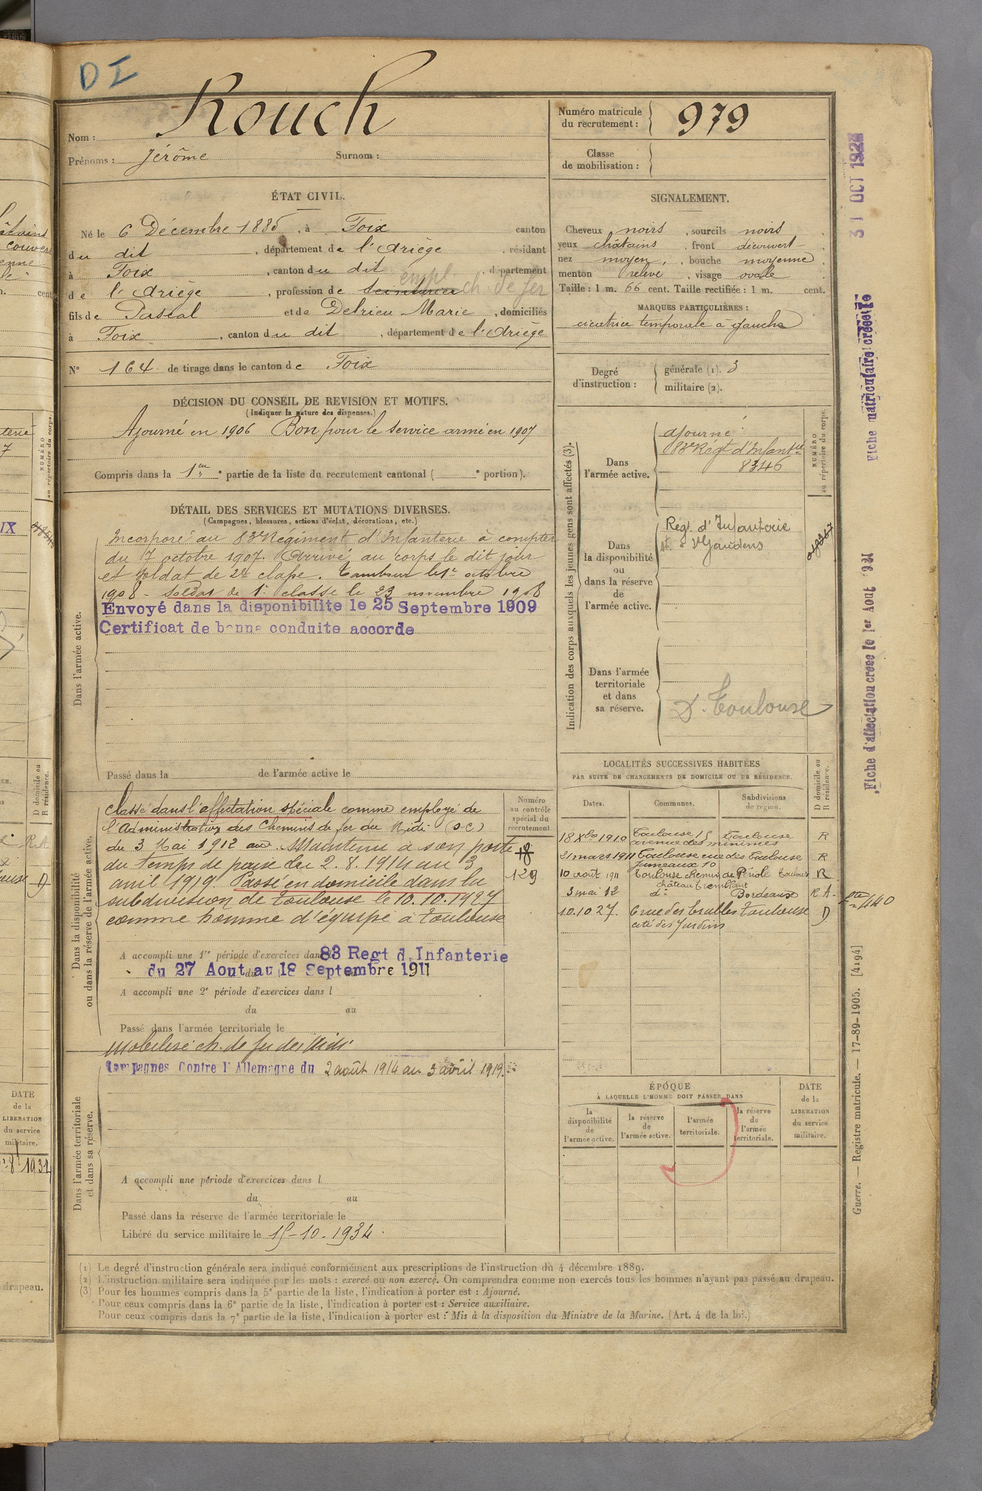 DI
Nom : Rouch
Prénoms : Jérôme Surnom :
Numéro matricule du recrutement : 979
Classe de mobilisation :
ÉTAT CIVIL.
Né le 6 Décembre 1885, à Foix canton
du dit, département de l'Ariège, résidant
à Foix, canton du dit département
de l'Ariège, profession de empl. ch. de fer
fils de Pascal et de Delrieu Marie, domiciliés
à Foix, canton du dit, département de l'Ariège
N° 164 de tirage dans le canton de Foix
SIGNALEMENT.
Cheveux noirs, sourcils noirs
yeux châtains, front découvert
nez moyen, bouche moyenne,
menton relevé, visage ovale
Taille : 1 m. 66 cent. Taille rectifiée : 1 m. cent.
MARQUES PARTICULIÈRES :
cicatrice temporale à gauche
Degré d'instruction : générale (1). 3
militaire (2).
DÉCISION DU CONSEIL DE REVISION ET MOTIFS.
(Indiquer la nature des dispenses.)
Ajourné en 1906 Bon pour le service armé en 1907
Compris dans la 1re partie de la liste du recrutement cantonal ( e portion).
DÉTAIL DES SERVICES ET MUTATIONS DIVERSES.
(Campagnes, blessures, actions d'éclat, décorations, etc.)
Dans l'armée active.
Incorporé au 83e Régiment d'Infanterie à compter
du 17 octobre 1907 Arrivé au corps le dit jour
et soldat de 2e classe. Tambour le 1er octobre
1908 - Soldat de 1e classe le 23 novembre 1908
Envoyé dans la disponibilite le 25 Septembre 1909
Certificat de bonne conduite accorde
Passé dans la de l'armée active le
Indication des corps auxquels les jeunes gens sont affectés (3).
NUMÉRO au répertoire du corps.
Dans l'armée active.
ajourné
83e Régt d'Infanterie
8346
Dans la disponibilité ou dans la réserve de l'armée active.
Régt d'Infanterie
St Gaudens
Dans l'armée territoriale et dans sa réserve.
D. Toulouse
Dans la disponibilité ou dans la réserve de l'armée active.
Classé dans l'affectation spéciale comme employé de
l'Administration des Chemins de fer du Midi (O.C)
du 3 Mai 1912 au. Maintenu à son poste
du temps de paix du 2.8.1914 au 3
avril 1919. Passé en domicile dans la
subdivision de Toulouse le 10.10.1927
comme homme d'équipe à Toulouse
Numéro au contrôle spécial du recrutement
18
129
A accompli une 1re période d'exercices dans 83 Regt d, Infanterie
du 27 Aout au 18 Septembre 1911
A accompli une 2e période d'exercices dans l
du au
Passé dans l'armée territoriale le
Mobilisé ch. de fer du Midi
Dans l'armée territoriale et dans sa réserve.
Campagnes Contre l'Allemagne du 2 août 1914 au 3 avril 1919.
A accompli une période d'exercices dans l
du au
Passé dans la réserve de l'armée territoriale le
Libéré du service militaire le 15-10-1934.
LOCALITÉS SUCCESSIVES HABITÉES
PAR SUITE DE CHANGEMENTS DE DOMICILE OU DE RÉSIDENCE.
Dates. Communes. Subdivisions de région. D domicile ou R résidence.
18 Xbre 1910 Toulouse 15 avenue des minimes Toulouse R
21 mars 1911 Toulouse rue des Jumeaux 10 Toulouse R
10 août 1911 Toulouse chemin de Périole château Tremblant R
3 mai 12 do Bordeaux R.A.
10.10.27. 6 rue des Toulouse D
cité des Jardins
440
ÉPOQUE
À LAQUELLE L'HOMME DOIT PASSER DANS
la disponibilité de l'armée active. la réserve de l'armée active. l'armée territoriale. la réserve de l'armée territoriale.
DATE de la LIBÉRATION du service militaire.
(1) Le degré d'instruction générale sera indiqué conformément aux prescriptions de l'instruction du 4 décembre 1889.
(2) L'instruction militaire sera indiquée par les mots : exercé ou non exercé. On comprendra comme non exercés tous les hommes n'ayant pas passé au drapeau.
(3) Pour les hommes compris dans la 5e partie de la liste, l'indication à porter est : Ajourné.
Pour ceux compris dans la 6e partie de la liste, l'indication à porter est : Service auxiliaire.
Pour ceux compris dans la 7e partie de la liste, l'indication à porter est : Mis à la disposition du Ministre de la Marine. (Art. 4 de la loi.)
31 OCT 1928
Fiche matriculaire créée le
Fiche d'affectation créée le 1er Aout
Guerre. — Registre matricule. — 17-89-1905. [4194]
DATE de la LIBÉRATION du service militaire.
drapeau.